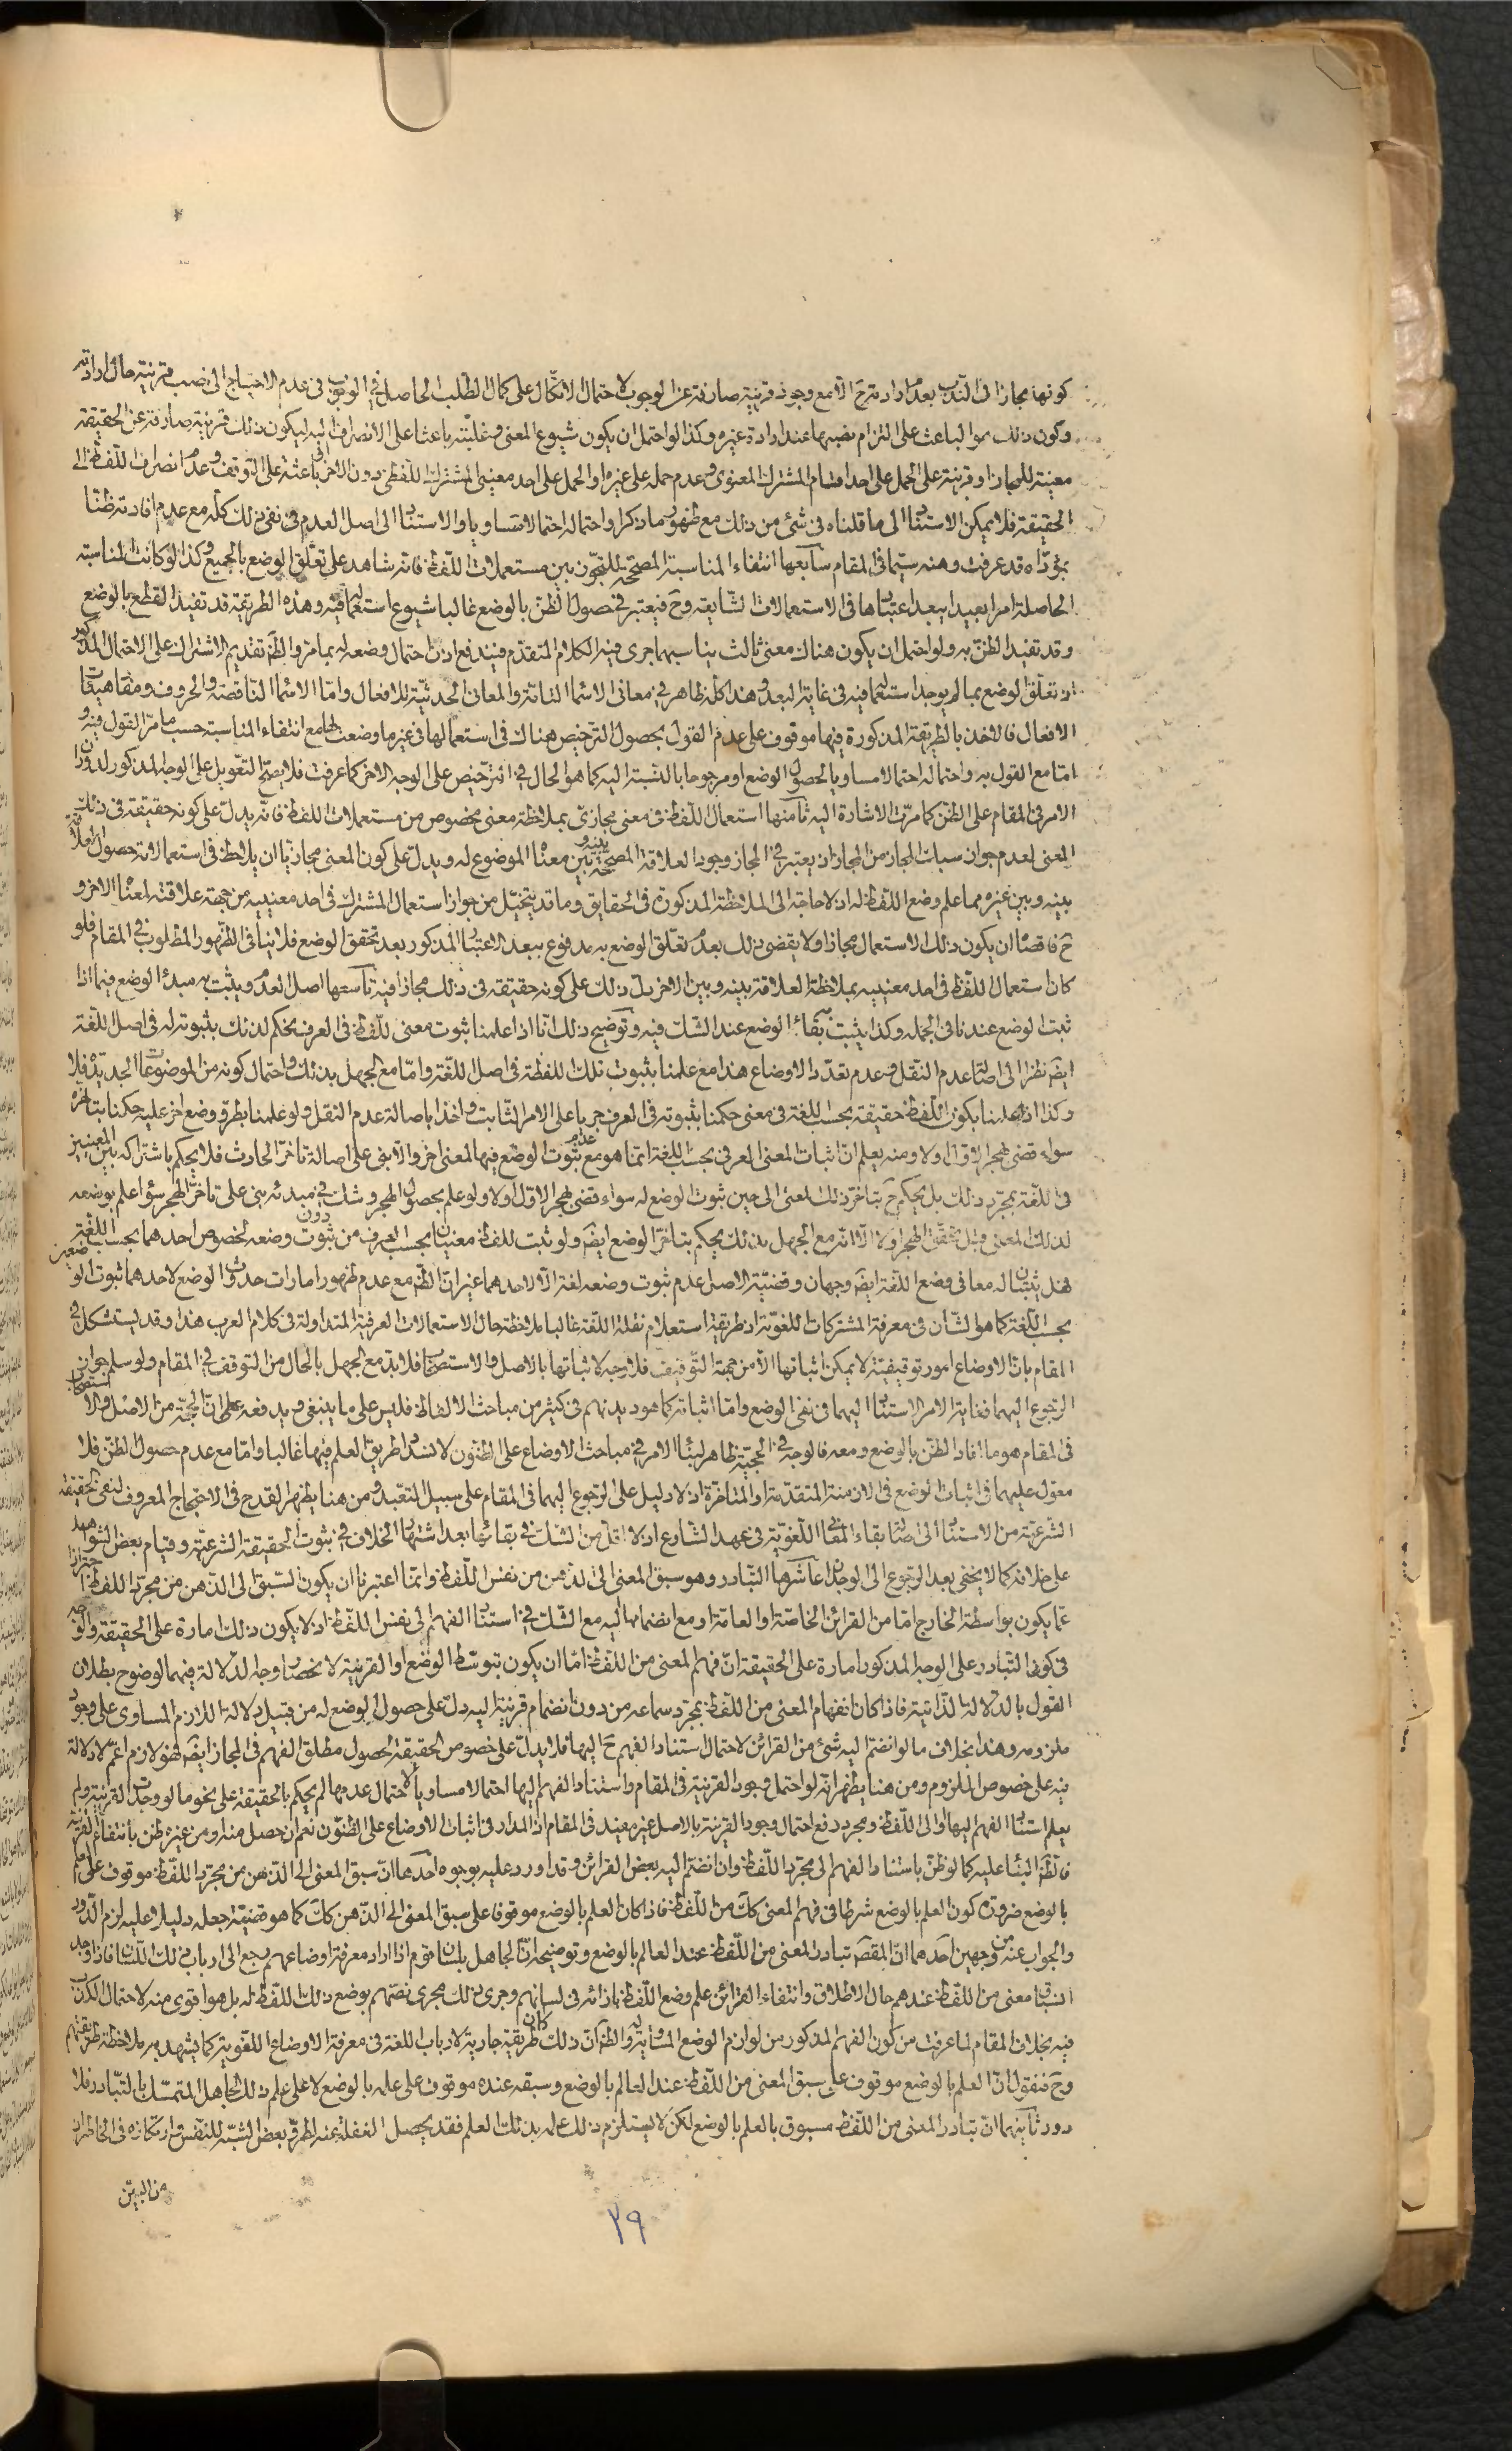 كونها مجازا فى الندب بعد ارادته ح الا مع وجود قرينة صارفة عن الوجوب لاحتمال الاتكال على كمال الطلب الحاصل فى الوجوب فى عدم الاحتياج الى نصب قرينة حال ارادته
وكون ذلك هو الباعث على التزام نصبها عند ارادة غيره وكذا لو احتمل ان يكون شيوع المعنى وغلبته باعثا على الانصراف اليه ليكون ذلك قرينة صارفة عن الحقيقة
معينة للمجاز او قرينة على الحمل على احد اقسام المشترك المعنوى وعدم حمله على غيره او الحمل على احد معنيى المشترك اللفظى دون الاخر او باعثة على التوقف وعدم انصراف اللفظ الى
الحقيقة فلا يمكن الاستناد الى ما قلناه فى شئ من ذلك مع ظهور ما ذكر او احتماله احتمالا متساويا والاستناد الى اصل العدم فى نفى ذلك كله مع عدم افادته ظنا
بمؤداه قد عرفت وهنه سيما فى المقام سابعها انتفاء المناسبة المصححة للتجوز بين مستعملات اللفظ فانه شاهد على تعلق الوضع بالجميع وكذا لو كانت المناسبة
الحاصلة امرا بعيدا يبعد اعتبارها فى الاستعمالات الشايعة وح فيعتبر فى حصول الظن بالوضع غالبا شيوع استعماله فيه وهذه الطريقة قد تفيد القطع بالوضع
وقد تفيد الظن به ولو احتمل ان يكون هناك معنى ثالث يناسبهما جرى فيه الكلام المتقدم فيندفع اذن احتمال وضعه له بما مر والظ تقديم الاشتراك على الاحتمال المذكور
اذ تعلق الوضع بما لم يوجد استعماله فيه فى غاية البعد وهذا كله ظاهر فى معانى الاسماء التامة والمعانى الحدثية للافعال واما الاسماء الناقصة والحروف ومفاهيمات
الافعال فالاخذ بالطريقة المذكورة فيها موقوف على عدم القول بحصول الترخيص هناك فى استعمالها فى غير ما وضعت لها مع انتفاء المناسبة حسب ما مر القول فيه و
اما مع القول به واحتماله احتمالا مساويا لحصول الوضع او مرجوحا بالنسبة اليه كما هو الحال فى الترخيص على الوجه الاخر كما عرفت فلا يصح التعويل على الوجه المذكور لدوران
الامر فى المقام على الظن كما مرت الاشارة اليه ثامنها استعمال اللفظ فى معنى مجازى بملاحظة معنى مخصوص من مستعملات اللفظ فانه يدل على كونه حقيقة فى ذلك
المعنى لعدم جواز سبك المجاز من المجاز اذ يعتبر فى المجاز وجود العلاقة المصححة بينه وبين معناه الموضوع له ويدل على كون المعنى مجازيا ان يلاحظ فى استعمالاته حصول العلاقة
بينه وبين غيره مما علم وضع اللفظ له اذ لا حاجة الى الملاحظة المذكورة فى الحقايق وما قد يتخيل من جواز استعمال المشترك فى احد معنييه من جهة علاقته لمعناه الاخر و
ح فاقصاه ان يكون ذلك الاستعمال مجازا ولا يقضى ذلك بعدم تعلق الوضع به مدفوع ببعد الاعتبار المذكور بعد تحقق الوضع فلا ينافى الظهور المطلوب فى المقام فلو
كان استعمال اللفظ فى احد معنييه بملاحظة العلاقة بينه وبين الاخر دل ذلك على كونه حقيقة فى ذلك مجازا فيه تاسعها اصل العدم ويثبت به مبدء الوضع فيما اذا
ثبت الوضع عندنا فى الجملة وكذا يثبت به بقاء الوضع عند الشك فيه وتوضيح ذلك انا اذا علمنا ثبوت معنى للفظ فى العرف يحكم لذلك بثبوته له فى اصل اللغة
ايض نظرا الى اصالة عدم النقل وعدم تعدد الاوضاع هذا مع علمنا بثبوت تلك اللفظة فى اصل اللغة واما مع الجهل بذلك واحتمال كونه من الموضوعات الجديدة فلا
وكذا اذا علمنا بكون اللفظ حقيقة بحسب اللغة فى معنى حكمنا بثبوته فى العرف جريا على الامر الثابت واخذا باصالة عدم النقل ولو علمنا بطرو وضع اخر عليه حكمنا بتاخره
سواء قضى بهجر الاول او لا ومنه يعلم ان اثبات المعنى العرفى بحسب اللغة انما هو مع عدم ثبوت الوضع فيها لمعنى اخر والا بنى على اصالة تاخر الحادث فلا يحكم باشتراكه بين المعنيين
فى اللغة بمجرد ذلك بل يحكم ح بتاخر ذلك المعنى الى حين ثبوت الوضع له سواء قضى بهجر الاول او لا ولو علم بحصول الهجر وشك فى مبدئه بنى على تاخر الهجر سواء علم بوضعه
لذلك المعنى قبل تحقق الهجر او لا الا انه مع الجهل بذلك يحكم بتاخر الوضع ايض ولو ثبت للفظ معنيان بحسب العرف من دون ثبوت وضعه لخصوص احدهما بحسب اللغة
فهل يثبتان له معا فى وضع اللغة ايض وجهان وقضية الاصل عدم ثبوت وضعه لغة الا لاحدهما غير ان الظ مع عدم ظهور امارات حدوث الوضع لاحدهما ثبوت الوضعين
بحسب اللغة كما هو الشان فى معرفة المشتركات اللغوية اذ طريقة استعلام نقلة اللغة غالبا ملاحظة حال الاستعمالات العرفية المتداولة فى كلام العرب هذا وقد يستشكل فى
المقام بان الاوضاع امور توقيفية لا يمكن اثباتها الا من جهة التوقيف فلا وجه لاثباتها بالاصل والاستصحاب فلا بد مع الجهل بالحال من التوقف فى المقام ولو سلم جواز
الرجوع اليهما فغاية الامر الاستناد اليهما فى نفى الوضع واما اثباته كما هو ديدنهم فى كثير من مباحث الالفاظ فليس على ما ينبغى ويدفعه على ان الحجة من الاصل والاستصحاب
فى المقام هو ما افاد الظن بالوضع ومعه فالوجه فى الحجية ظاهر لبناء الامر فى مباحث الاوضاع على الظنون لانسداد طريق العلم فيها غالبا واما مع عدم حصول الظن فلا
معول عليهما فى اثبات الوضع فى الازمنة المتقدمة او المتاخرة اذ لا دليل على الرجوع اليهما فى المقام على سبيل التعبد ومن هنا يظهر القدح فى الاحتجاج المعروف لنفى الحقيقة
الشرعية من الاستناد الى اصالة بقاء المعانى اللغوية فى عهد الشارع اذ لا اقل من الشك فى بقائها بعد اشتهار الخلاف فى ثبوت الحقيقة الشرعية وقيام بعض الشواهد
على خلافه كما لا يخفى بعد الرجوع الى الوجدان عاشرها التبادر وهو سبق المعنى الى الذهن من نفس اللفظ وانما اعتبرنا ان يكون السبق الى الذهن من مجرد اللفظ احترازا
عما يكون بواسطة الخارج اما من القرائن الخاصة او العامة او مع انضمامها اليه مع الشك فى استناد الفهم الى نفس اللفظ اذ لا يكون ذلك امارة على الحقيقة والوجه
فى كون التبادر على الوجه المذكور امارة على الحقيقة ان فهم المعنى من اللفظ اما ان يكون بتوسط الوضع او القرينة لانحصار وجه الدلالة فيهما لوضوح بطلان
القول بالدلالة الذاتية فاذا كان انفهام المعنى من اللفظ بمجرد سماعه من دون انضمام قرينة اليه دل على حصول الوضع له من قبيل دلالة اللازم المساوى على وجود
ملزومه وهذا بخلاف ما لو انضم اليه شئ من القرائن لاحتمال استناد الفهم ح اليها فلا يدل على خصوص الحقيقة لحصول مطلق الفهم فى المجاز ايض فهو لازم اعم لا دلالة
فيه على خصوص الملزوم ومن هنا يظهر انه لو احتمل وجود القرينة فى المقام واستناد الفهم اليها احتمالا مساويا لاحتمال عدمها لم يحكم بالحقيقة على نحو ما لو وجدت القرينة ولم
يعلم استناد الفهم اليها او الى اللفظ ومجرد دفع احتمال وجود القرينة بالاصل غير مفيد فى المقام اذ المدار فى اثبات الاوضاع على الظنون نعم ان حصل منه او من غيره ظن بانتفاء القرينة
فالظ البناء عليه كما لو ظن باستناد الفهم الى مجرد اللفظ وان انضم اليه بعض القرائن وقد اورد عليه بوجوه احدها ان سبق المعنى الى الذهن من مجرد اللفظ موقوف على العلم
بالوضع ضرورة كون العلم بالوضع شرطا فى فهم المعنى كك من اللفظ فاذا كان العلم بالوضع موقوفا على سبق المعنى الى الذهن كك كما هو قضية جعله دليلا عليه لزم الدور
والجواب عنه من وجهين احدهما ان المقص تبادر المعنى من اللفظ عند العالم بالوضع وتوضيحه ان الجاهل بلسان قوم اذا اراد معرفة اوضاعهم رجع الى ارباب ذلك اللسان فاذا وجد
انسباق معنى من اللفظ عندهم حال الاطلاق وانتفاء القرائن علم وضع اللفظ بازائه فى لسانهم وجرى ذلك مجرى نصهم بوضع ذلك اللفظ له بل هو اقوى منه لاحتمال الكذب
فيه بخلاف المقام لما عرفت من كون الفهم المذكور من لوازم الوضع المساوية له والظ ان ذلك كان طريقة جارية لارباب اللغة فى معرفة الاوضاع اللغوية كما يشهد به ملاحظة طريقتهم
وح فنقول ان العلم بالوضع موقوف على سبق المعنى من اللفظ عند العالم بالوضع وسبقه عنده موقوف على علمه بالوضع لا على علم ذلك الجاهل المتمسك بالتبادر فلا
دور ثانيهما ان تبادر المعنى من اللفظ مسبوق بالعلم بالوضع لكن لا يستلزم ذلك علمه بذلك العلم فقد يحصل الغفلة عنه لطرو بعض الشبه للنفس وارتكازه فى الخاطر اذ
من البين
٢٩